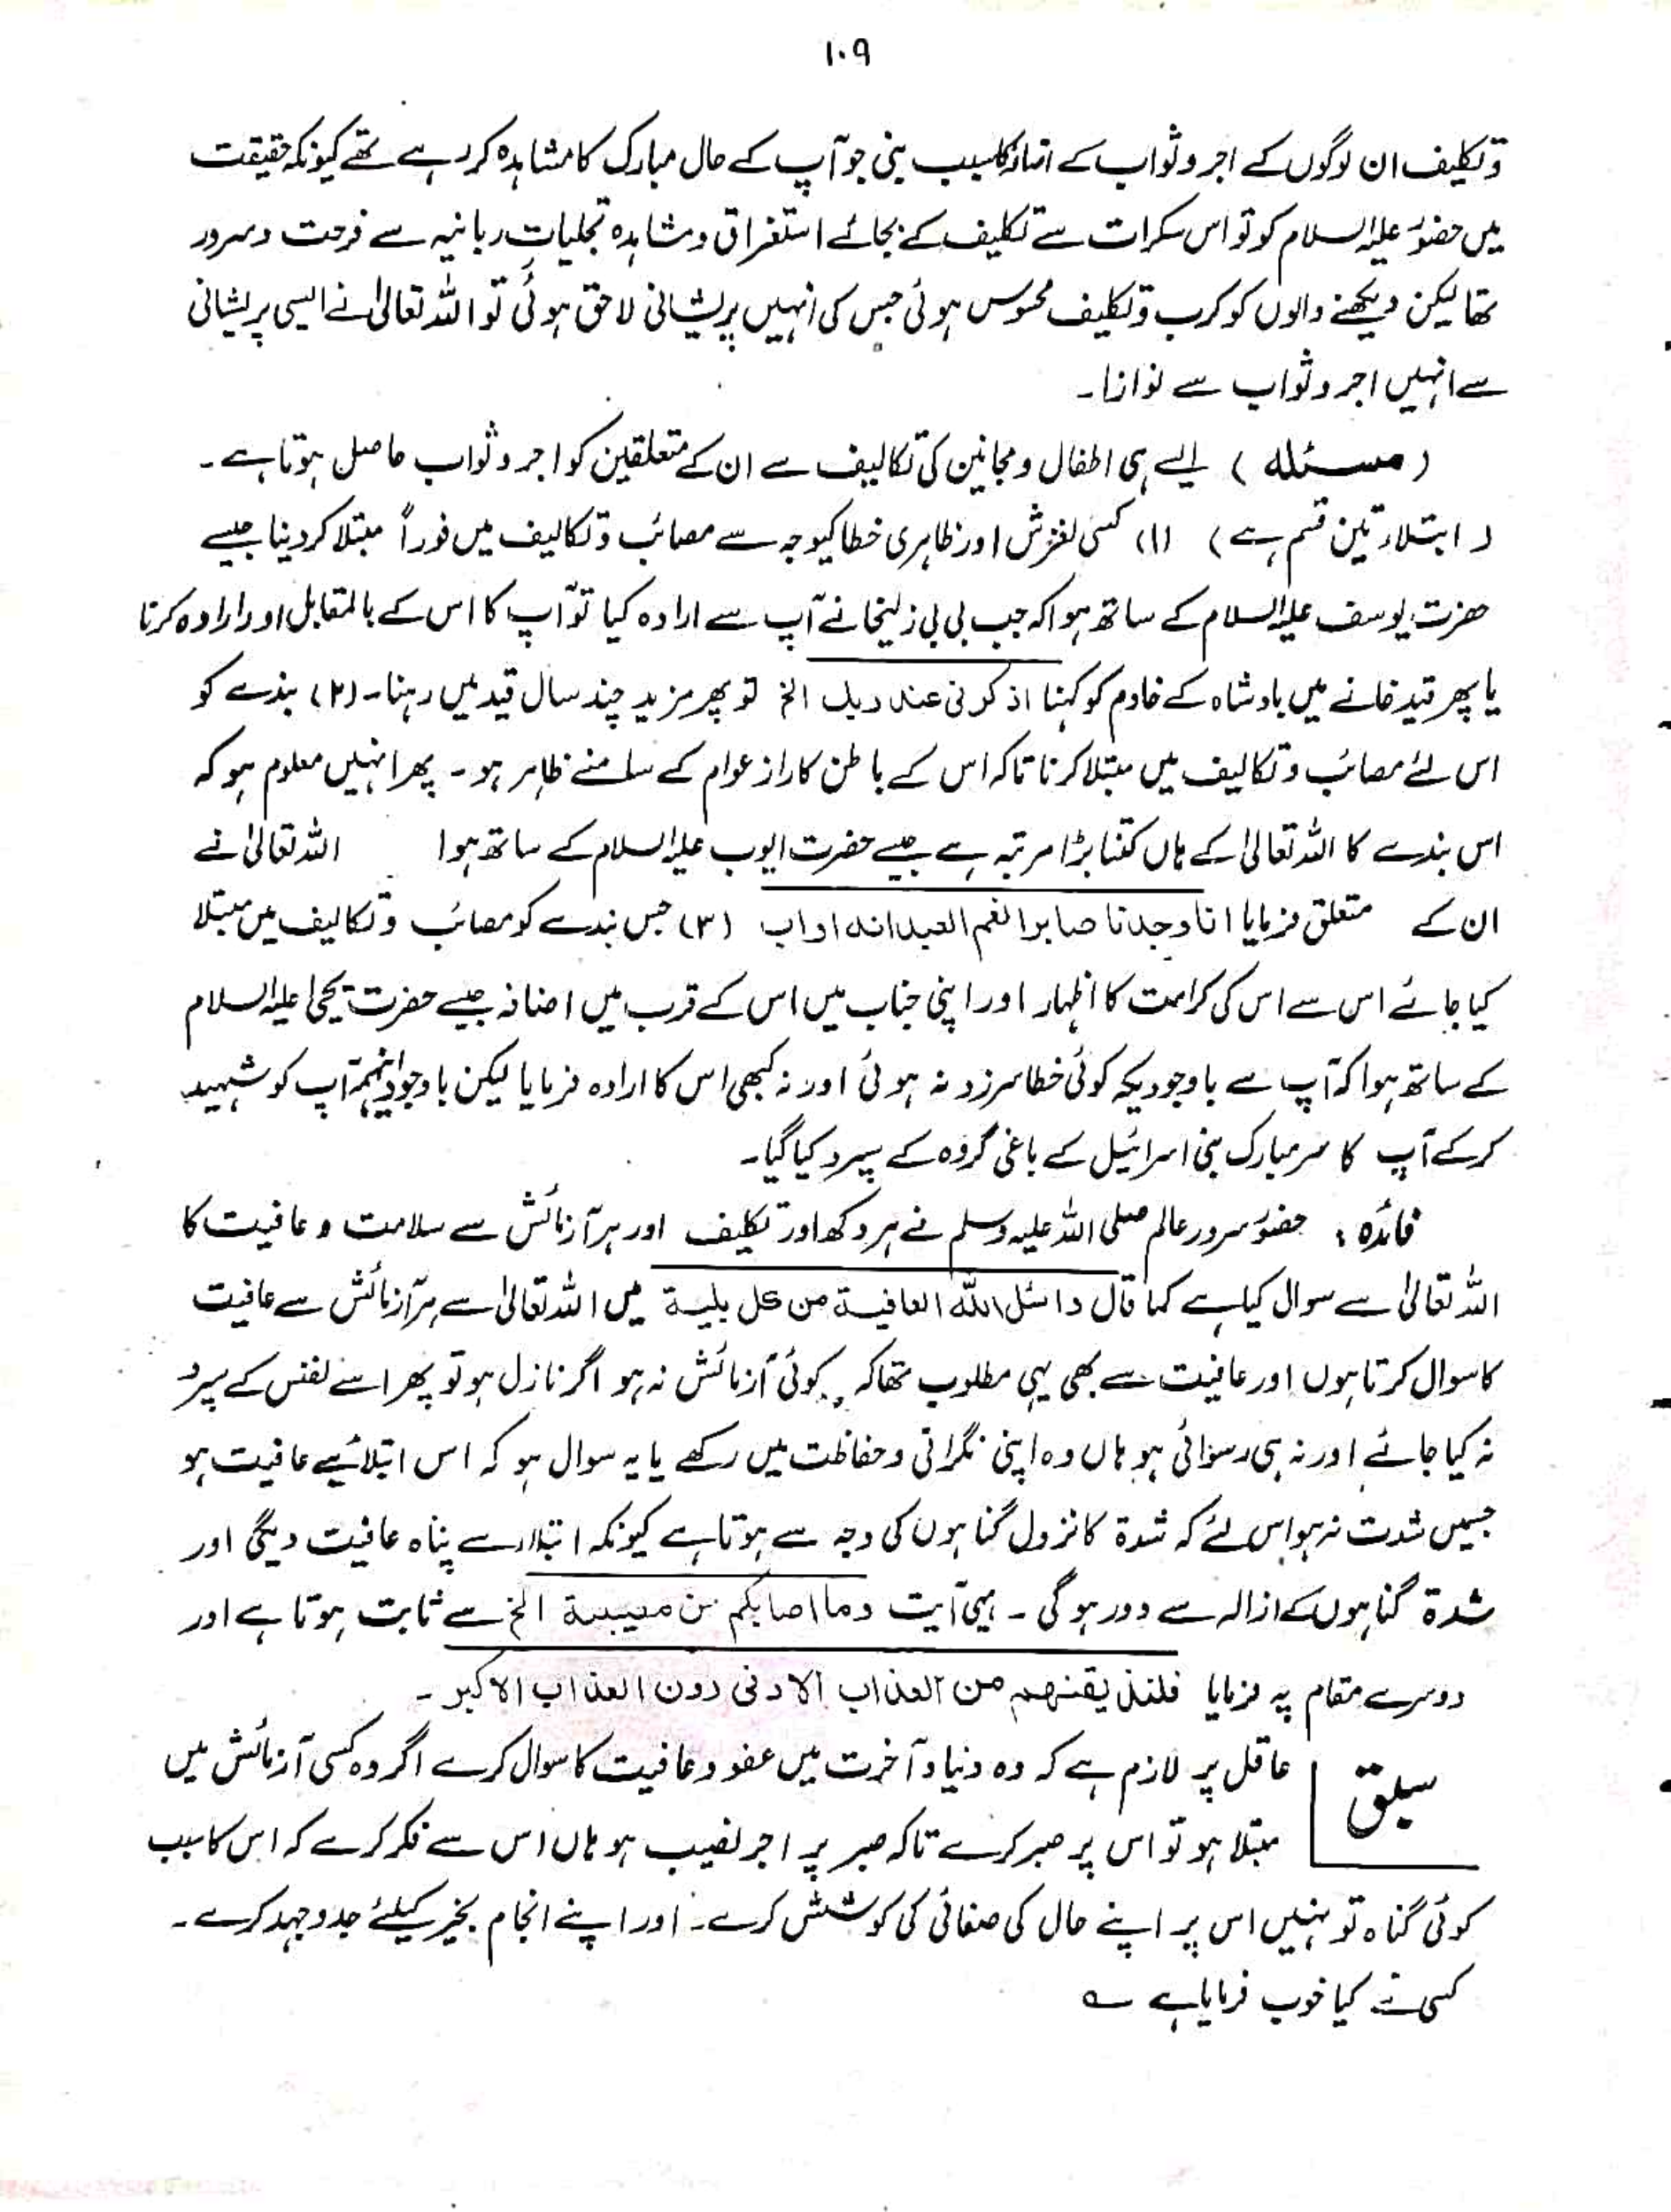 ۱۰۹
وتکلیف ان لوگوں کے اجر و ثواب کے اضافہ کا سبب بنی جو آپ کے حال مبارک کا مشاہدہ کر رہے تھے کیونکہ حقیقت
میں حضور علیہ السلام کو تو اس سکرات سے تکلیف کے بجائے استغراق و مشاہدہ تجلیاتِ ربانیہ سے فرحت و سرور
تھا لیکن دیکھنے والوں کو کرب و تکلیف محسوس ہوئی جس کی انہیں پریشانی لاحق ہوئی تو اللہ تعالیٰ نے ایسی پریشانی
سے انہیں اجر و ثواب سے نوازا۔
(مسئلہ) ایسے ہی اطفال و مجانین کی تکالیف سے ان کے متعلقین کو اجر و ثواب حاصل ہوتا ہے۔
(ابتلاء تین قسم ہے) (۱) کسی لغزش اور ظاہری خطا کیوجہ سے مصائب و تکالیف میں فوراً مبتلا کر دینا جیسے
حضرت یوسف علیہ السلام کے ساتھ ہوا کہ جب بی بی زلیخا نے آپ سے ارادہ کیا تو آپ کا اس کے بالمقابل اور ارادہ کرنا
یا پھر قید خانے میں بادشاہ کے خادم کو کہنا اذکرنی عند ربک الخ تو پھر مزید چند سال قید میں رہنا۔ (۲) بندے کو
اس لئے مصائب و تکالیف میں مبتلا کرنا تاکہ اس کے باطن کا راز عوام کے سامنے ظاہر ہو۔ پھر انہیں معلوم ہو کہ
اس بندے کا اللہ تعالیٰ کے ہاں کتنا بڑا مرتبہ ہے جیسے حضرت ایوب علیہ السلام کے ساتھ ہوا اللہ تعالیٰ نے
ان کے متعلق فرمایا انا وجدنا صابرا لغم العبد انہ اواب (۳) جس بندے کو مصائب و تکالیف میں مبتلا
کیا جائے اس سے اس کی کرامت کا اظہار اور اپنی جناب میں اس کے قرب میں اضافہ جیسے حضرت یحیٰی علیہ السلام
کے ساتھ ہوا کہ آپ سے باوجودیکہ کوئی خطا سرزد نہ ہوئی اور نہ کبھی اس کا ارادہ فرمایا لیکن باوجود اینہمہ آپ کو شہید
کر کے آپ کا سر مبارک بنی اسرائیل کے باغی گروہ کے سپرد کیا گیا۔
فائدہ : حضور سرور عالم صلی اللہ علیہ وسلم نے ہر دکھ اور تکلیف اور ہر آزمائش سے سلامت و عافیت کا
اللہ تعالیٰ سے سوال کیا ہے کما قال واسئل اللہ العافیۃ من کل بلیۃ میں اللہ تعالیٰ سے ہر آزمائش سے عافیت
کا سوال کرتا ہوں اور عافیت سے بھی یہی مطلوب تھا کہ کوئی آزمائش نہ ہو اگر نازل ہو تو پھر اسے نفس کے سپرد
نہ کیا جائے اور نہ ہی رسوائی ہو ہاں وہ اپنی نگرانی و حفاظت میں رکھے یا یہ سوال ہو کہ اس ابتلائیے عافیت ہو
جسمیں شدت نہ ہو اس لئے کہ شدۃ کا نزول گناہوں کی وجہ سے ہوتا ہے کیونکہ ابتلاء سے پناہ عافیت دیگی اور
شدۃ گناہوں کے ازالہ سے دور ہو گی۔ یہی آیت وما اصابکم من مصیبۃ الخ سے ثابت ہوتا ہے اور
دوسرے مقام پہ فرمایا فلنذیقنھم من العذاب الادنی دون العذاب الاکبر۔
سبق
عاقل پر لازم ہے کہ وہ دنیا و آخرت میں عفو و عافیت کا سوال کرے اگر وہ کسی آزمائش میں
مبتلا ہو تو اس پر صبر کرے تاکہ صبر پر اجر نصیب ہو ہاں اس سے فکر کرے کہ اس کا سبب
کوئی گناہ تو نہیں اس پر اپنے حال کی صفائی کی کوشش کرے۔ اور اپنے انجام بخیر کیلئے جدوجہد کرے۔
کسی نے کیا خوب فرمایا ہے ؎